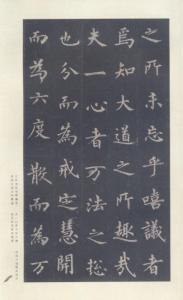 之所未忘乎嘻議者
焉知大道之所趣哉
夫一心者万法之揔
也分而為戒定慧開
而為六度散而為万